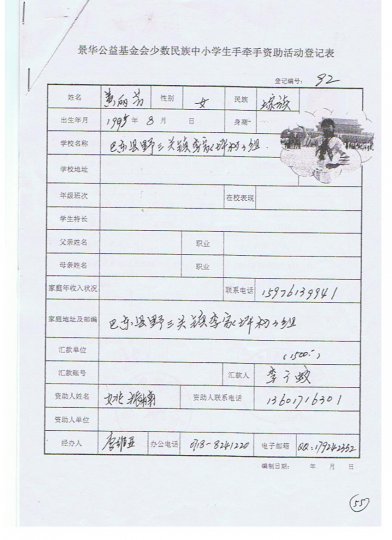 景华公益基金会少数民族中小学生手牵手资助活动登记表
登记编号： 92
姓名 性别 女 民族
出生年月 年 8 月 日 身高
学校名称 巴东县野三关镇李家坪村
学校地址
年级班次 在校表现
学生特长
父亲姓名 职业
母亲姓名 职业
家庭年收入状况 联系电话 15976139941
家庭地址及邮编 巴东县野三关镇李家坪村
汇款单位
汇款账号 汇款人
资助人姓名 资助人联系电话 13601716301
资助人单位
经办人 办公电话 0718-8241220 电子邮箱 QQ:179242352
编制日期： 年 月 日
55